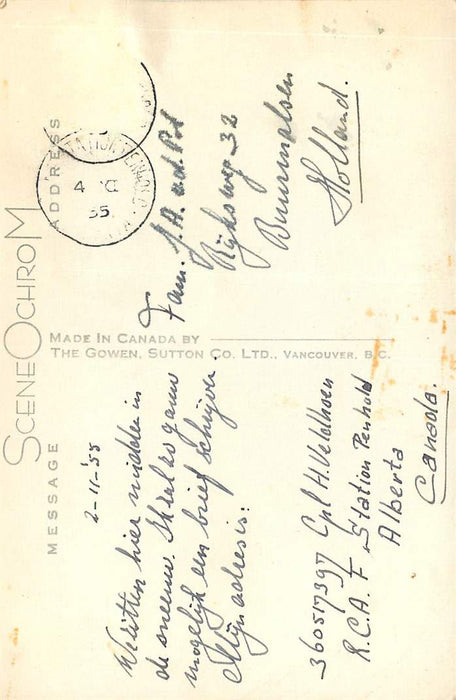 SCENEOCHROM
MESSAGE
ADDRESS
2-11-'55
We zitten hier midden in
de sneeuw. Ik zal zo gauw
mogelijk een brief schrijven
Mijn adres is:
36057397 Cpl H. Veldhoen
R.C.A.F Station Penhold
Alberta
Canada.
MADE IN CANADA BY
THE GOWEN, SUTTON CO. LTD., VANCOUVER, B.C.
STATION PENHOLD
4
55
Fam. J.H. v.d. Pol
Rijksweg 32
Buurmalsen
Holland.